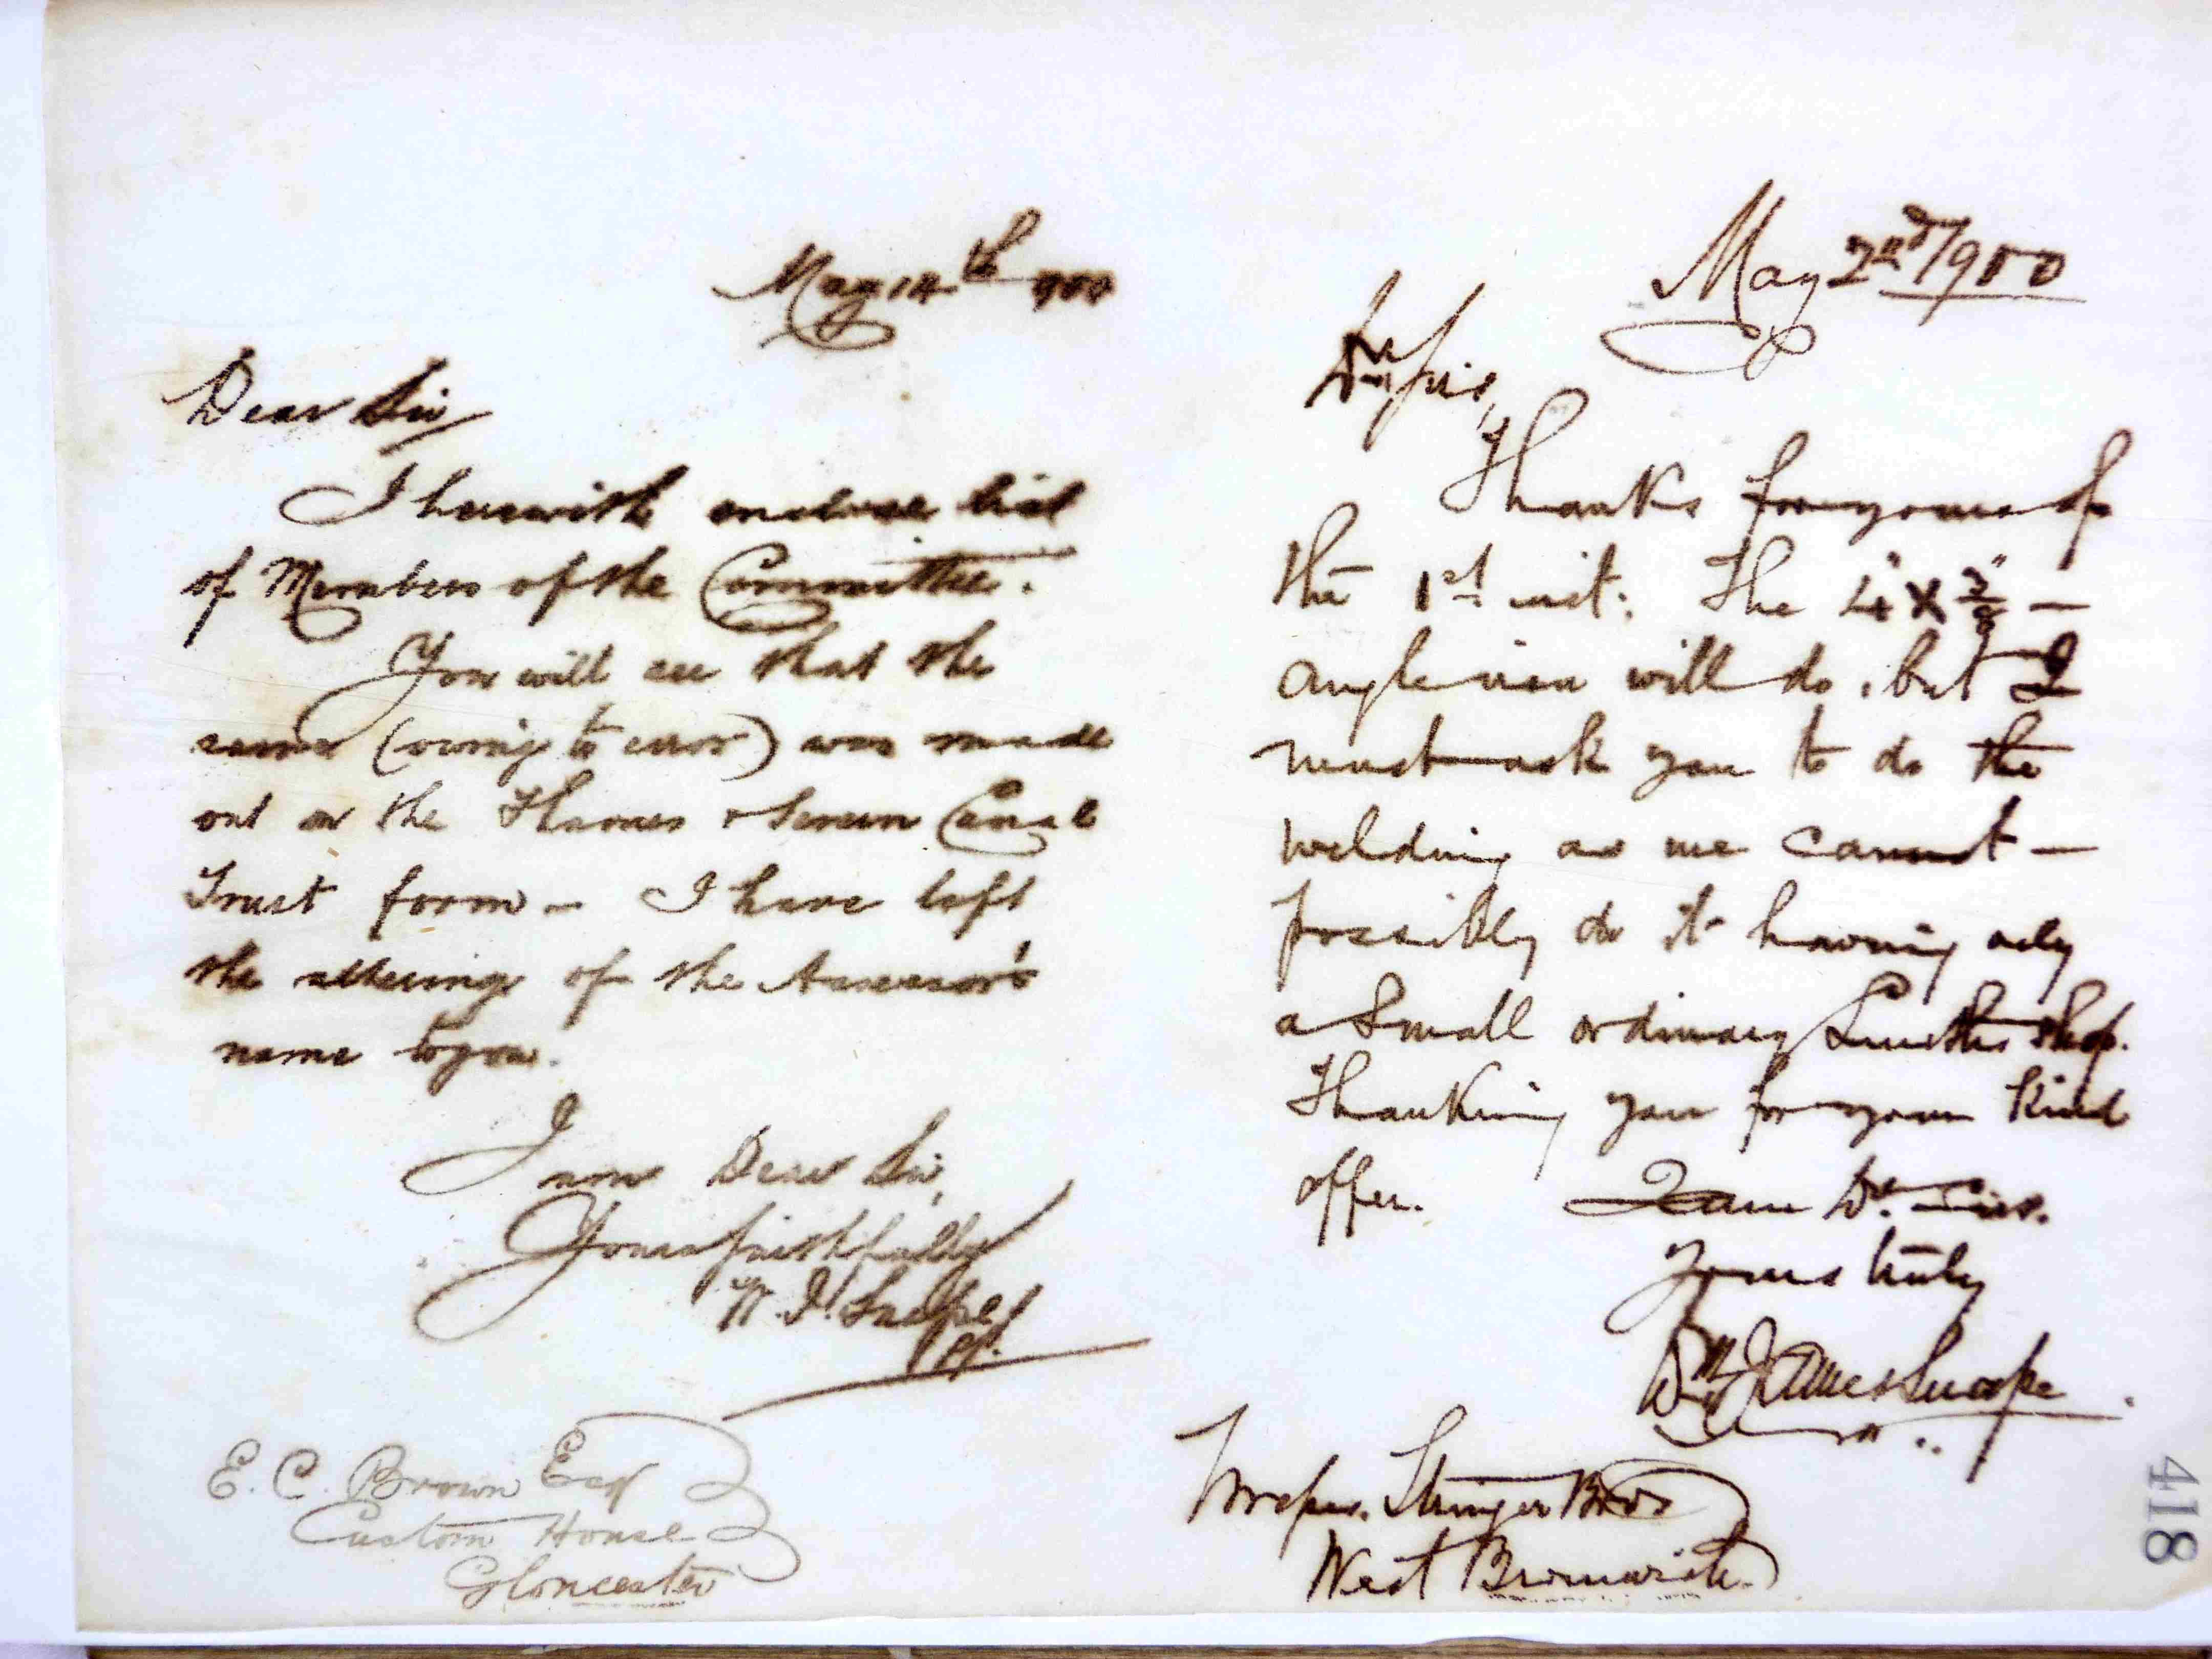 May 14th 1900
Dear Sir
I herewith enclose list
of Members of the Committee.
You will see that the
same (owing to error) was made
out on the Thames & Severn Canal
Trust form - I have left
the altering of the Assessor's
name to you.
I am Dear Sir,
Yours faithfully
W. J. Snape
E. C. Brown Esq
Custom House
Gloucester
May 2nd 1900
Dr Sirs,
Thanks for yours of
the 1st inst: The 4" x 3/8" —
angle iron will do, but I
must ask you to do the
welding as we cannot —
possibly do it having only
a small ordinary Smiths shop.
Thanking you for your kind
offer. I am Dr. Sirs.
Yours truly
Wm James Snape
Messrs. Stringer Bros
West Bromwich
418